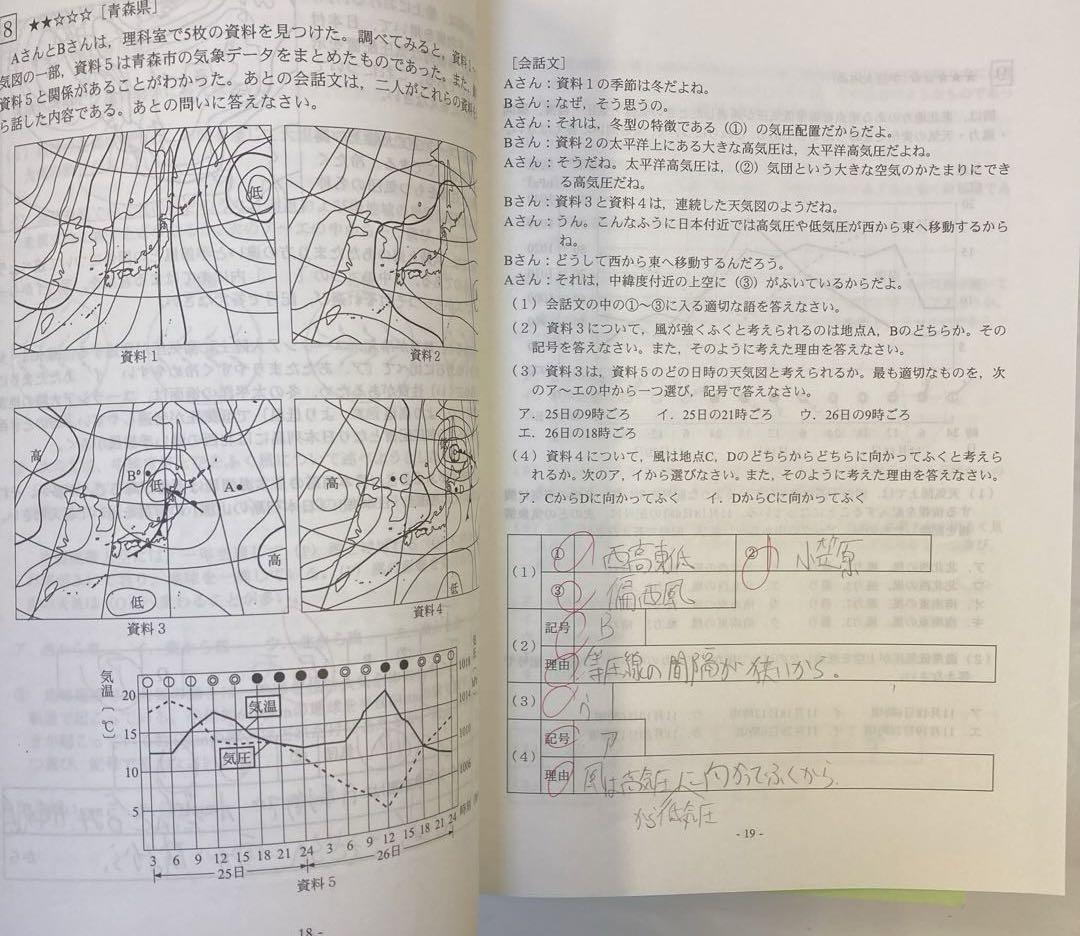 8 ★★☆☆☆ [青森県]
AさんとBさんは，理科室で5枚の資料を見つけた。調べてみると，資料1～
気図の一部，資料5は青森市の気象データをまとめたものであった。また，
資料5と関係があることがわかった。あとの会話文は，二人がこれらの資料
ら話した内容である。あとの問いに答えなさい。
低
資料1
資料2
高
B
低
A
高
低
資料3
高
C
D
低
資料4
気温
(℃)
20
15
10
5
1018
1014
1010
1006
気温
気圧
時刻
3 6 9 12 15 18 21 24 3 6 9 12 15 18 21 24
25日
26日
資料5
18 -
[会話文]
Aさん：資料1の季節は冬だよね。
Bさん：なぜ，そう思うの。
Aさん：それは，冬型の特徴である（①）の気圧配置だからだよ。
Bさん：資料2の太平洋上にある大きな高気圧は，太平洋高気圧だよね。
Aさん：そうだね。太平洋高気圧は，（②）気団という大きな空気のかたまりにでき
る高気圧だね。
Bさん：資料3と資料4は，連続した天気図のようだね。
Aさん：うん。こんなふうに日本付近では高気圧や低気圧が西から東へ移動するから
ね。
Bさん：どうして西から東へ移動するんだろう。
Aさん：それは，中緯度付近の上空に（③）がふいているからだよ。
（1）会話文の中の①～③に入る適切な語を答えなさい。
（2）資料3について，風が強くふくと考えられるのは地点A，Bのどちらか。その
記号を答えなさい。また，そのように考えた理由を答えなさい。
（3）資料3は，資料5のどの日時の天気図と考えられるか。最も適切なものを，次
のア～エの中から一つ選び，記号で答えなさい。
ア．25日の9時ごろ イ．25日の21時ごろ ウ．26日の9時ごろ
エ．26日の18時ごろ
（4）資料4について，風は地点C，Dのどちらからどちらに向かってふくと考えら
れるか。次のア，イから選びなさい。また，そのように考えた理由を答えなさい。
ア．CからDに向かってふく イ．DからCに向かってふく
（1） ① 西高東低 ② 小笠原
③ 偏西風
（2） 記号 B
理由 等圧線の間隔が狭いから。
（3） ウ
（4） 記号 ア
理由 風は高気圧に向かってふくから
から低気圧
- 19 -